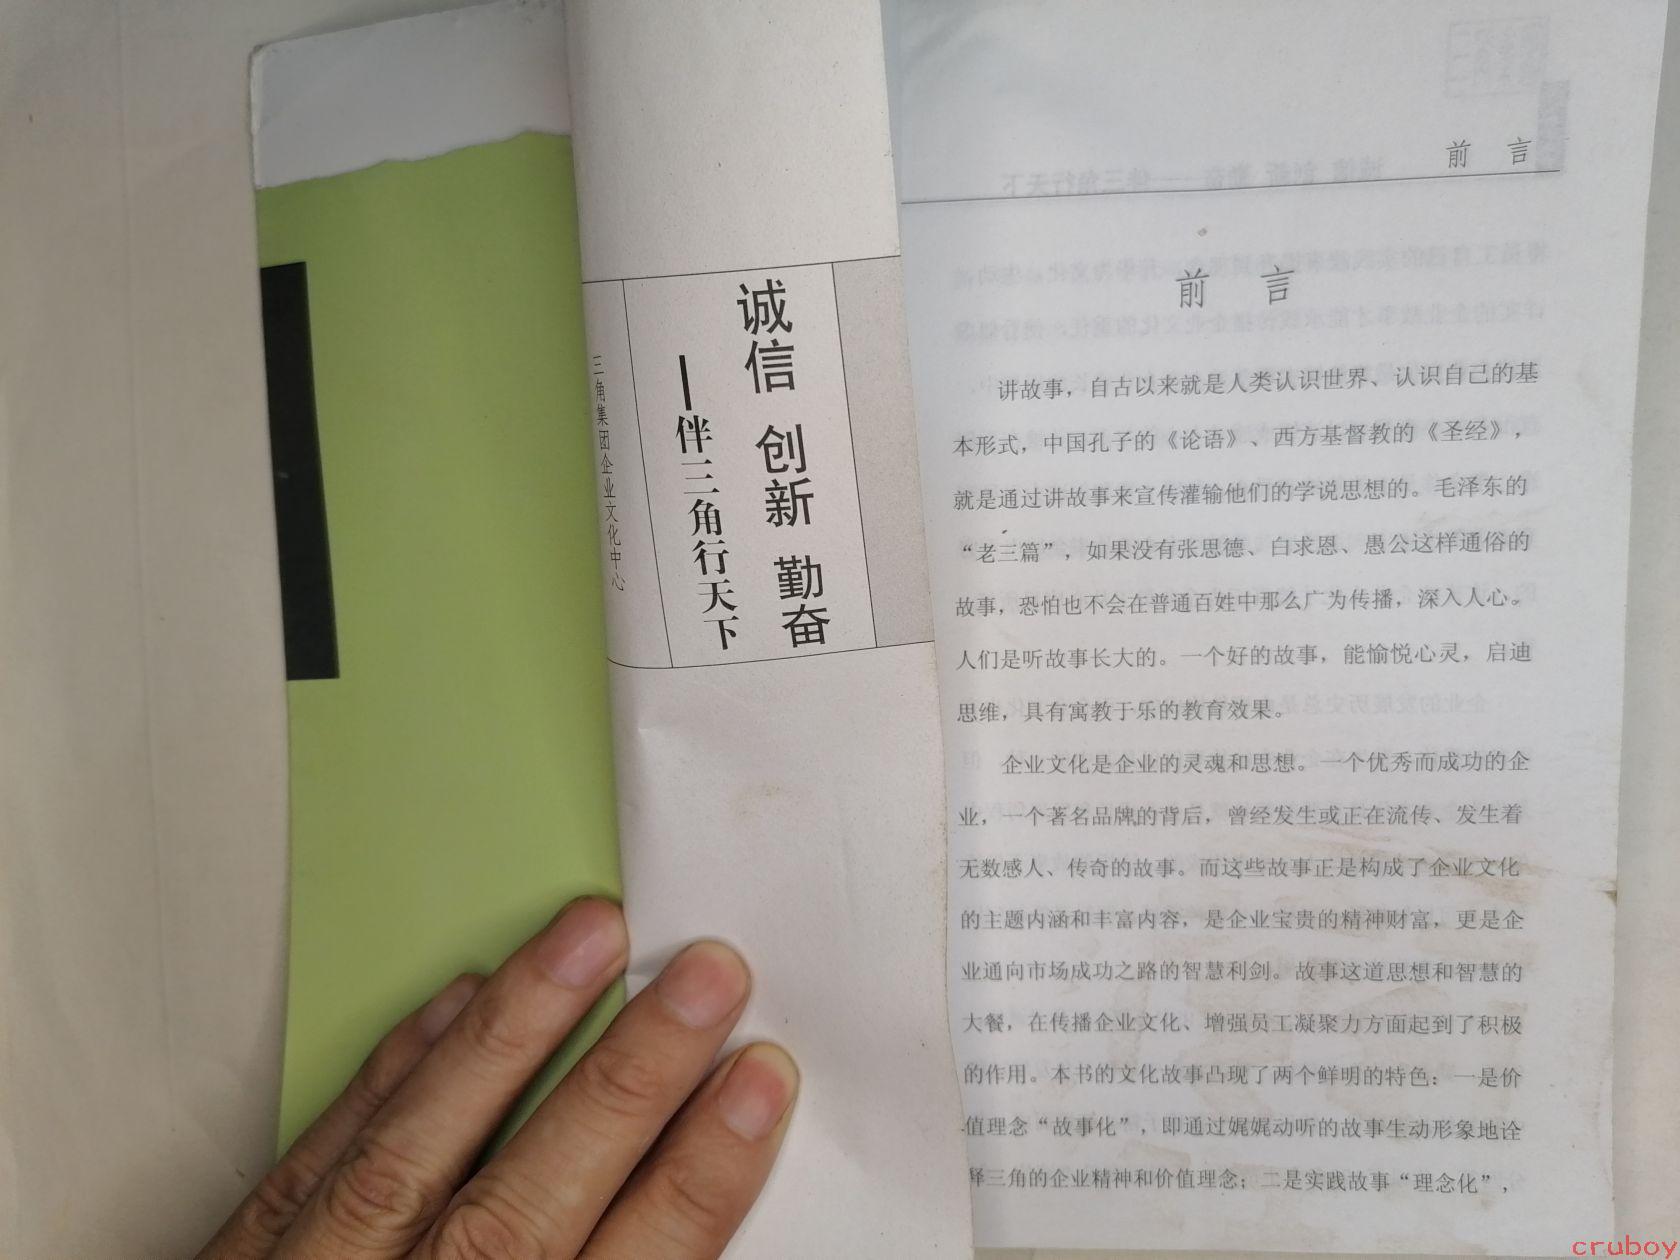 诚信 创新 勤奋
—伴三角行天下
三角集团企业文化中心
前 言
前 言
讲故事，自古以来就是人类认识世界、认识自己的基
本形式，中国孔子的《论语》、西方基督教的《圣经》，
就是通过讲故事来宣传灌输他们的学说思想的。毛泽东的
“老三篇”，如果没有张思德、白求恩、愚公这样通俗的
故事，恐怕也不会在普通百姓中那么广为传播，深入人心。
人们是听故事长大的。一个好的故事，能愉悦心灵，启迪
思维，具有寓教于乐的教育效果。
企业文化是企业的灵魂和思想。一个优秀而成功的企
业，一个著名品牌的背后，曾经发生或正在流传、发生着
无数感人、传奇的故事。而这些故事正是构成了企业文化
的主题内涵和丰富内容，是企业宝贵的精神财富，更是企
业通向市场成功之路的智慧利剑。故事这道思想和智慧的
大餐，在传播企业文化、增强员工凝聚力方面起到了积极
的作用。本书的文化故事凸现了两个鲜明的特色：一是价
值理念“故事化”，即通过娓娓动听的故事生动形象地诠
释三角的企业精神和价值理念；二是实践故事“理念化”，
cruboy